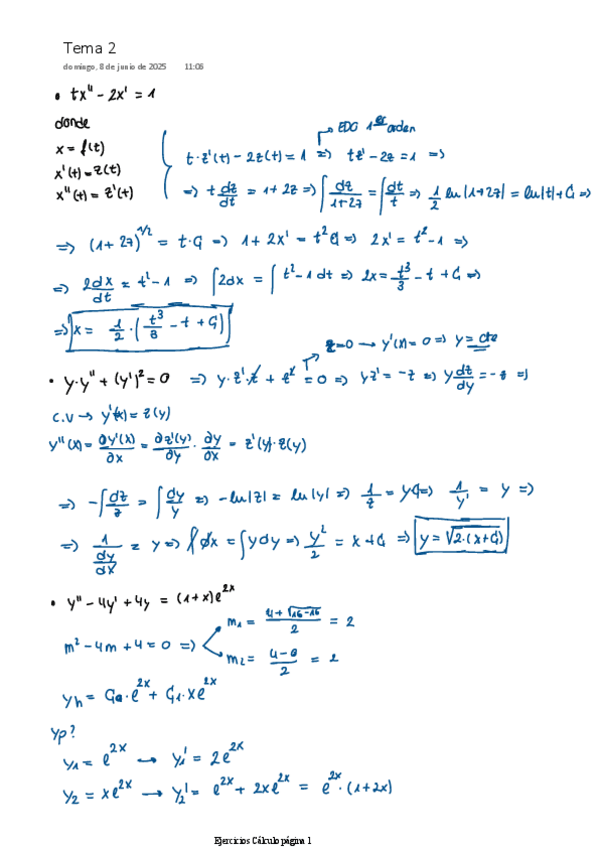 Tema 2
domingo, 8 de junio de 2025 11:08
• tx'' - 2x' = 1
donde
x = f(t)
x'(t) = z(t)
x''(t) = z'(t)
→ EDO 1er orden
t·z'(t) - 2z(t) = 1 => tz' - 2z = 1 =>
=> t dz/dt = 1+2z => ∫ dz/1+2z = ∫ dt/t => 1/2 ln|1+2z| = ln|t| + C₁ =>
=> (1+2z)^1/2 = t·C₁ => 1+2x' = t²C₁ => 2x' = t²-1 =>
=> 2dx/dt = t²-1 => ∫2dx = ∫ t²-1 dt => 2x = t³/3 - t + C₁ =>
=> x = 1/2 · (t³/3 - t + C₁)
z=0 → y'(x)=0 => y = cte
• y·y'' + (y')² = 0 => y·z'·z + z² = 0 => yz' = -z => y dz/dy = -z =>
C.V → y'(x) = z(y)
y''(x) = ∂y'(x)/∂x = ∂z'(y)/∂y · ∂y/∂x = z'(y)·z(y)
=> -∫ dz/z = ∫ dy/y => -ln|z| = ln|y| => 1/z = yC₁ => 1/y' = y =>
=> 1/(dy/dx) = y => ∫dx = ∫ydy => y²/2 = x + C₁ => y = √2·(x+C₁)
• y'' - 4y' + 4y = (1+x)e^2x
m² - 4m + 4 = 0 =>
m₁ = 4+√16-16/2 = 2
m₂ = 4-0/2 = 2
yh = C₀·e^2x + C₁·xe^2x
yp?
y₁ = e^2x → y₁' = 2e^2x
y₂ = xe^2x → y₂' = e^2x + 2xe^2x = e^2x·(1+2x)
Ejercicios Cálculo página 1